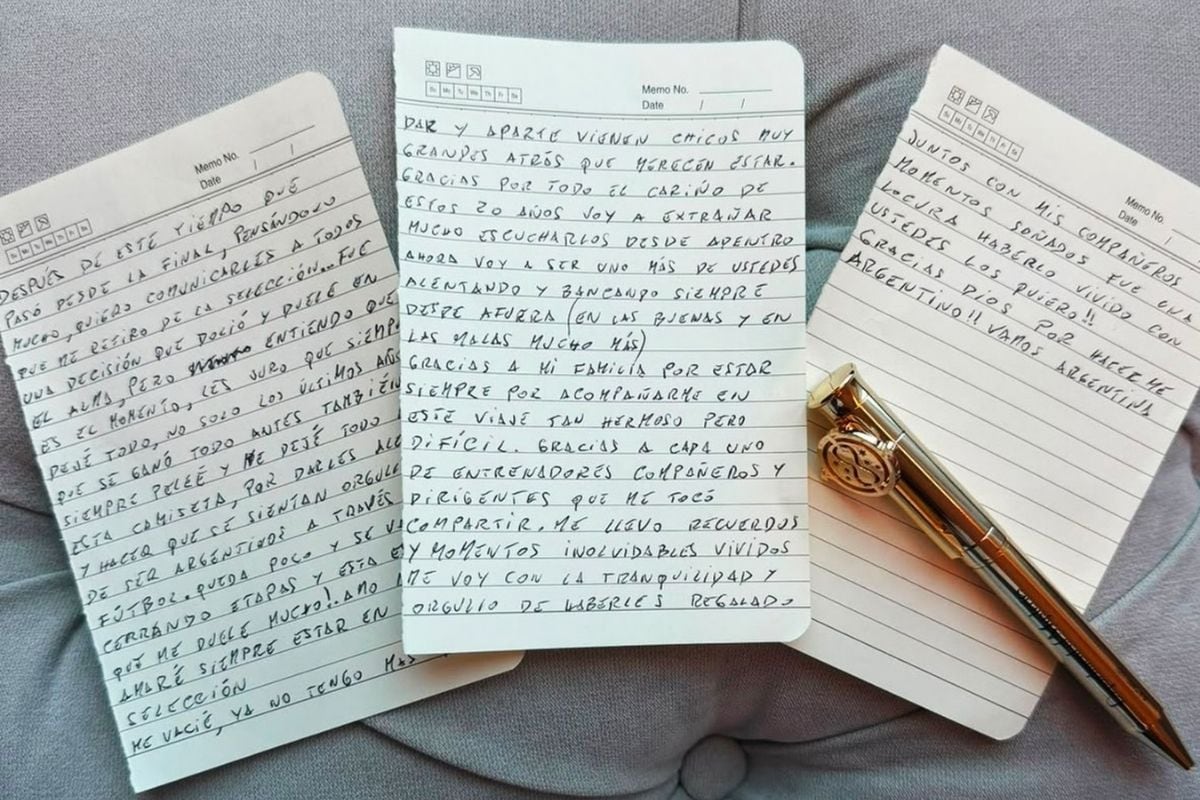 Memo No.
Date / /
DESPUÉS DE ESTE TIEMPO QUE
PASÓ DESDE LA FINAL, PENSÁNDOLO
MUCHO, QUIERO COMUNICARLES A TODOS
QUE ME RETIRO DE LA SELECCIÓN... FUE
UNA DECISIÓN QUE DOLIÓ Y DUELE EN
EL ALMA, PERO ENTIENDO QUE
ES EL MOMENTO, LES JURO QUE SIEMP
DEJÉ TODO, NO SOLO LOS ÚLTIMOS AÑOS
QUE SE GANÓ TODO ANTES TAMBIÉN
SIEMPRE PELEÉ Y ME DEJÉ TODO
ESTA CAMISETA, POR DARLES ALE
Y HACER QUE SE SIENTAN ORGULL
DE SER ARGENTINOS A TRAVÉS
FÚTBOL. QUEDA POCO Y SE VA
CERRANDO ETAPAS Y ESTA E
QUE ME DUELE MUCHO!. AMO
AMARÉ SIEMPRE ESTAR EN
SELECCIÓN
ME VACIÉ, YA NO TENGO MAS
Memo No.
Su Mo Tu We Th Fr Sa
Date / /
DAR Y APARTE VIENEN CHICOS MUY
GRANDES ATRÁS QUE MERECEN ESTAR.
GRACIAS POR TODO EL CARIÑO DE
ESTOS 20 AÑOS VOY A EXTRAÑAR
MUCHO ESCUCHARLOS DESDE ADENTRO
AHORA VOY A SER UNO MÁS DE USTEDES
ALENTANDO Y BANCANDO SIEMPRE
DESDE AFUERA (EN LAS BUENAS Y EN
LAS MALAS MUCHO MÁS)
GRACIAS A MI FAMILIA POR ESTAR
SIEMPRE POR ACOMPAÑARME EN
ESTE VIAJE TAN HERMOSO PERO
DIFÍCIL. GRACIAS A CADA UNO
DE ENTRENADORES COMPAÑEROS Y
DIRIGENTES QUE ME TOCÓ
COMPARTIR. ME LLEVO RECUERDOS
Y MOMENTOS INOLVIDABLES VIVIDOS
ME VOY CON LA TRANQUILIDAD Y
ORGULLO DE HABERLES REGALADO
Memo No.
Date /
JUNTOS CON MIS COMPAÑEROS
MOMENTOS SOÑADOS FUE UNA
LOCURA HABERLO VIVIDO CON
USTEDES LOS QUIERO!!
GRACIAS DIOS POR HACERME
ARGENTINO!! VAMOS ARGENTINA